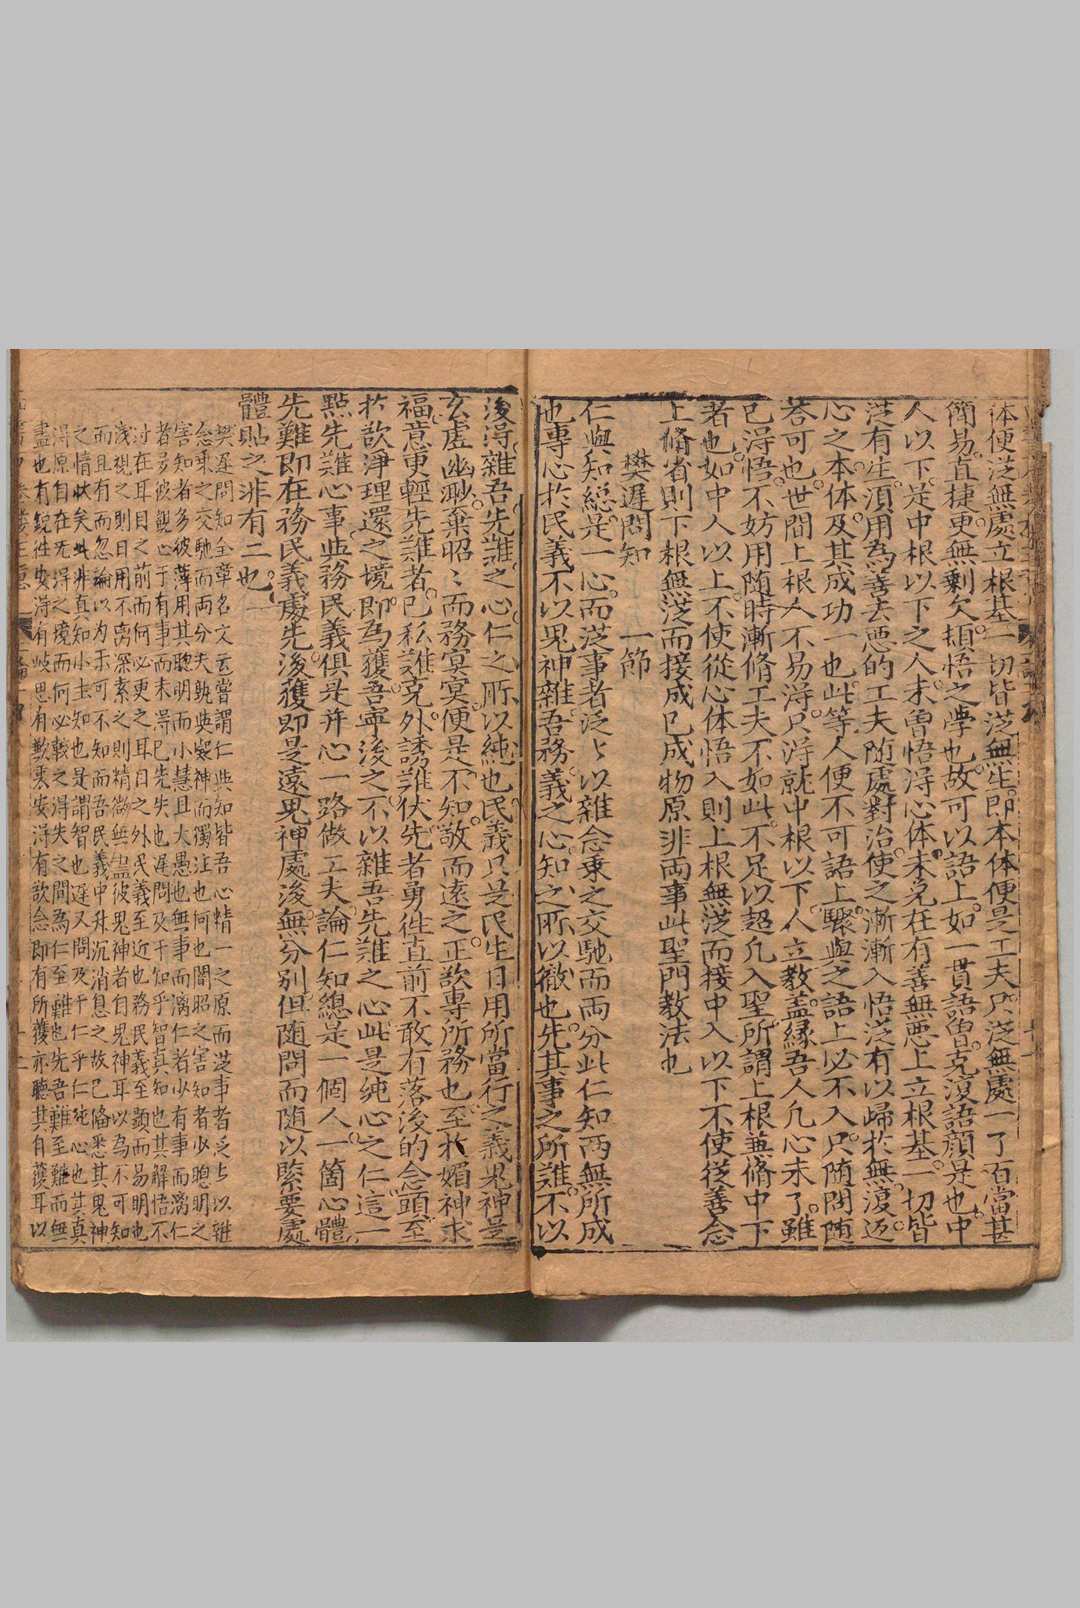 体便從無處立根基一切皆從無生即本体便是工夫只從無處一了百當甚
簡易直捷更無剩欠頓悟之學也故可以語上如一貫語曾克復語顔是也中
人以下是中根以下之人未曾悟得心体未免在有善無惡上立根基一切皆
從有生須用為善去惡的工夫随處對治使之漸漸入悟從有以歸於無復还
心之本体及其成功一也此等人便不可語上驟與之語上必不入只随問随
答可也世間上根人不易得只得就中根以下人立教盖緣吾人凡心未了雖
已得悟不妨用随時漸脩工夫不如此不足以超凡入聖所謂上根兼脩中下
者也如中人以上不使從心体悟入則上根無從而接中人以下不使從善念
上脩省則下根無從而接成已成物原非両事此聖門教法也
樊遲問知 一節
仁與知總是一心而從事者泛泛以雜念乗之交馳而両分此仁知両無所成
也專心於民義不以鬼神雜吾務義之心知之所以徹也先其事之所難不以
後得雜吾先難之心仁之所以純也民義只是民生日用所當行之義鬼神是
玄虛幽渺棄昭昭而務㝠㝠便是不知敬而遠之正欲專所務也至於媚神求
福意更輕先難者己私難克外誘難伏先者勇徃直前不敢有落後的念頭至
於欲淨理還之境即為獲吾寧後之不以雜吾先難之心此是純心之仁這一
點先難心事與務民義俱是并心一路做工夫論仁知總是一個人一箇心體
先難即在務民義處先後獲即是遠鬼神處後無分別但随問而随以緊要處
體貼之非有二也
樊遲問知全章名文云嘗謂仁與知皆吾心精一之原而從事者乏上以雜
念乗之交馳而両分夫孰與凝神而獨注也何也闇昭之害知者必聰明之
害知者多彼薄用其聰明而小慧且大愚也無事而漓仁者少有事而漓仁
者多彼觀心于有事而未得已先失也遲問及于知乎智真知也其解悟不
过在耳目之前而何必更之耳目之外民義至近也務民義至顕而易明也
浅視之則日用不离深索之則精微無盡彼鬼神者自鬼神耳以為不可知
而且有而忽論以为示可不知而吾民義中升沉消息之故已偹悉其鬼神
之情狀矣此非真知小士知也是謂智也遲又問及于仁乎仁純心也其真
得原自在无得之境而何必較之得失之間為仁至難也先吾難至難而無
盡也有銳徃安得有岐思有歎來安得有歆念即有所獲亦聽其自獲耳以